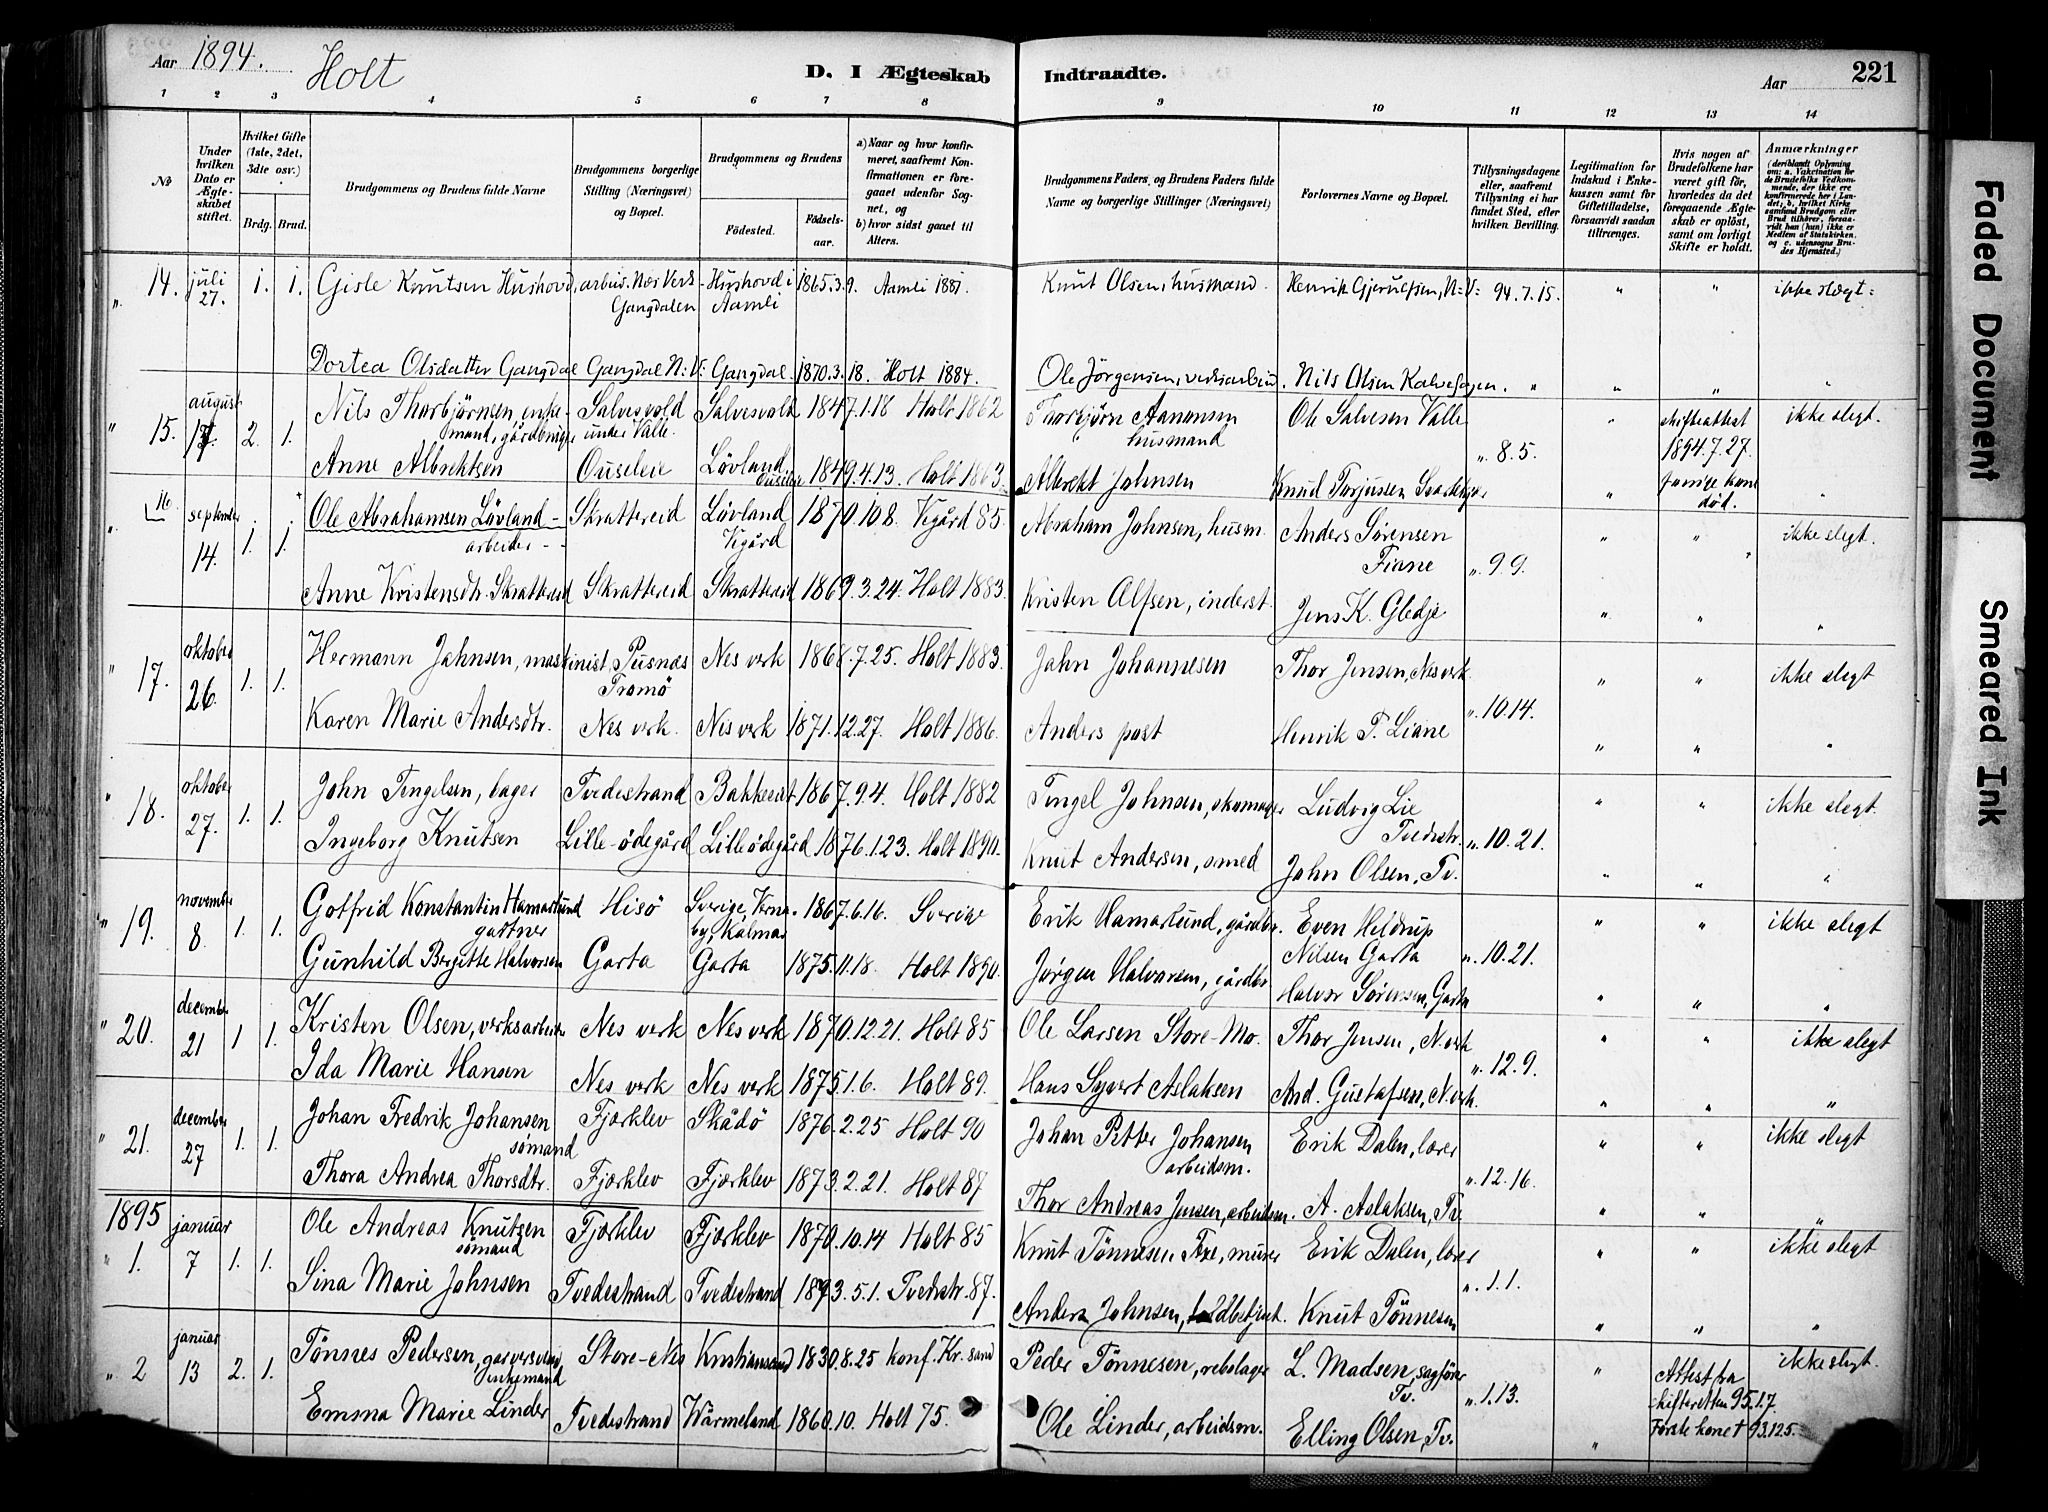 Aar 1894. Holt
D. I Ægteskab Indtraadte.
Aar 221
1 2 3 4 5 6 7 8 9 10 11 12 13 14
No
Under hvilken Dato er Ægteskabet stiftet.
Hvilket Gifte (1ste, 2det, 3die osv.)
Brdg. Brud.
Brudgommens og Brudens fulde Navne
Brudgommens borgerlige Stilling (Næringsvei) og Bopæl.
Brudgommens og Brudens
Fødested. Fødselsaar.
a) Naar og hvor konfirmeret, saafremt Konfirmationen er foregaaet udenfor Sognet, og
b) hvor sidst gaaet til Alters.
Brudgommens Faders, og Brudens Faders fulde Navne og borgerlige Stillinger (Næringsvei)
Forlovernes Navne og Bopæl.
Tillysningsdagene eller, saafremt Tillysning ei har fundet Sted, efter hvilken Bevilling.
Legitimation for Indskud i Enkekassen samt for Giftetilladelse, forsaavidt saadan tiltrænges.
Hvis nogen af Brudefolkene har været gift før, hvorledes da det foregaaende Ægteskab er opløst, samt om lovligt Skifte er holdt.
Anmærkninger
(deriblandt Oplysning om: a. Vakcination for de Brudefolks Vedkommende, der ikke ere konfirmerede her i Landet; b, hvilket Kirkesamfund Brudgom eller Brud tilhører, forsaavidt han (hun) ikke er Medlem af Statskirken, og c. udensogns Brudes Hjemsted.)
" 14. juli 27. 1. 1. Gisle Knutsen Hushovd, arbeid. Nes Verk Gangdalen Hushovd i Aamli 1865.3.9. Aamli 1881. Knut Olsen, husmand. Henrik Gjerulfsen, N:V: 94.7.15. " " ikke slegt:
Dortea Olsdatter Gangdal Gangdal N:V: Gangdal. 1870.3.18. Holt 1884. Ole Jörgensen, verksarbeid. Nils Olsen Kalvehagen. " " " "
" 15. august 17. 2. 1. Nils Thorbjörnsen, enkemand, gårdbruger Salvesvold under Valle. Salvesvold 1847.1.18 Holt 1862 Thorbjörn Aanonsen husmand Ole Salvesen Valle " 8.5. " skifteattest 1894.7.27. forrige kone död. ikke slegt.
Anne Albrektsen Ouseleie Lövland, Ouseleie 1849.4.13. Holt 1863. Albrekt Johnsen Knud Torjussen " "
" 16 september 14. 1. 1. Ole Abrahamsen Lövland arbeider Skrattereid Lövland Vegård 1870.10.8. Vegård 85. Abraham Johnsen, husm. Anders Sörensen Fiane " 9.9. " " ikke slegt.
Anne Kristensdtr. Skrattereid Skrattereid Skrattereid 1869.3.24. Holt 1883. Kristen Alfsen, inderst. Jens K. Gledje " " "
" 17. oktober 26. 1. 1. Hermann Jahnsen, maskinist Pusnes Tromö Nes verk 1868.7.25. Holt 1883. Jahn Johannesen Thor Jensen, Nesverk. " 10.14. " " ikke slegt
Karen Marie Andersdtr. Nes verk. Nes verk 1871.12.27. Holt 1886. Anders post Henrik P. Liane " " "
" 18. oktober 27. 1. 1. John Tengelsen, bager Tvedestrand Bakkereiet 1867.9.4. Holt 1882 Tengel Johnsen, skomager Ludvig Lie Tvedestr. " 10.21. " " ikke slegt.
Ingeborg Knutsen Lille-ödegård Lille ödegård 1876.1.23. Holt 1890. Knut Andersen, smed John Olsen, Tv. " " "
" 19. november 8. 1. 1. Gotfrid Konstantin Hamarlund gartner Hisö Sverige, Kalmar 1867.6.16. Sverige Erik Hamarlund, gårdbr. Even Heldrup Nilsen Garta " 10.21. " " ikke slegt
Gunhild Bergitte Halvorsen Garta Garta 1875.11.18. Holt 1890. Jörgen Halvorsen, gårdbr Halvor Sörensen, Garta " " "
" 20. december 21 1 1. Kristen Olsen, verksarbeider Nes verk Nes verk 1870.12.21. Holt 85 Ole Larsen Store-Mo. Thor Jensen, N.verk " 12.9. " " ikke slegt
Ida Marie Hansen Nes verk Nes verk 1875.1.6. Holt 89. Hans Syvert Aslaksen And. Gustafsen, N.verk. " " "
" 21. december 27 1. 1. Johan Fredrik Johansen sömand Fjærklev Skådö 1876.2.25 Holt 90 Johan Petter Johansen arbeidsm. Erik Dalen, lærer " 12.16. " " ikke slegt
Thora Andrea Thorsdtr. Fjærklev Fjærklev 1873.2.21. Holt 87 Thor Andreas Jensen, arbeidsm. A. Aslaksen, Tv. " " "
1895
" 1. januar 7 1. 1. Ole Andreas Knutsen sömand Fjærklev Fjærklev 1870.10.14 Holt 85 Knut Tönnesen, murer Erik Dalen, lærer " 1.1. " " ikke slegt
Sina Marie Johnsen Tvedestrand Tvedestrand 1873.5.1. Tvedestr. 87. Anders Johnsen, Knut Tönnesen " " "
" 2 januar 13 2. 1. Tönnes Pedersen, garversvend enkemand Store-Nes Kristiansand 1830.8.25 konf. Kr.sand Peder Tönnesen, rebslager L. Madsen, sagförer Tv. " 1.13. " Attest fra skifteretten 95.1.7. Förste kone † 93.12.5. ikke slegt.
Emma Marie Linder Tvedestrand Wärmeland 1860.10. Holt 75. Ole Linder, arbeidsm. Elling Olsen, Tv. "
Faded Document
Smeared Ink